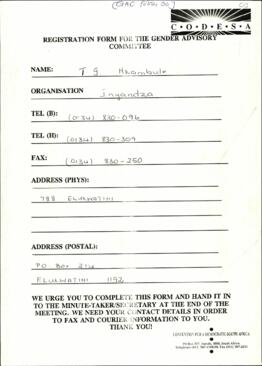 C·O·D·E·S·A
REGISTRATION FORM FOR THE GENDER ADVISORY
COMMITTEE
NAME: T G Nkambule
ORGANISATION Inyandza
TEL (B): (0134) 830-096
TEL (H): (0134) 830-309
FAX: (0134) 830-250
ADDRESS (PHYS):
788 ELUKWATINI
ADDRESS (POSTAL):
PO Box 214
ELUKWATINI 1192
WE URGE YOU TO COMPLETE THIS FORM AND HAND IT IN
TO THE MINUTE-TAKER/SECRETARY AT THE END OF THE
MEETING. WE NEED YOUR CONTACT DETAILS IN ORDER
TO FAX AND COURIER INFORMATION TO YOU.
THANK YOU!
CONVENTION FOR A DEMOCRATIC SOUTH AFRICA